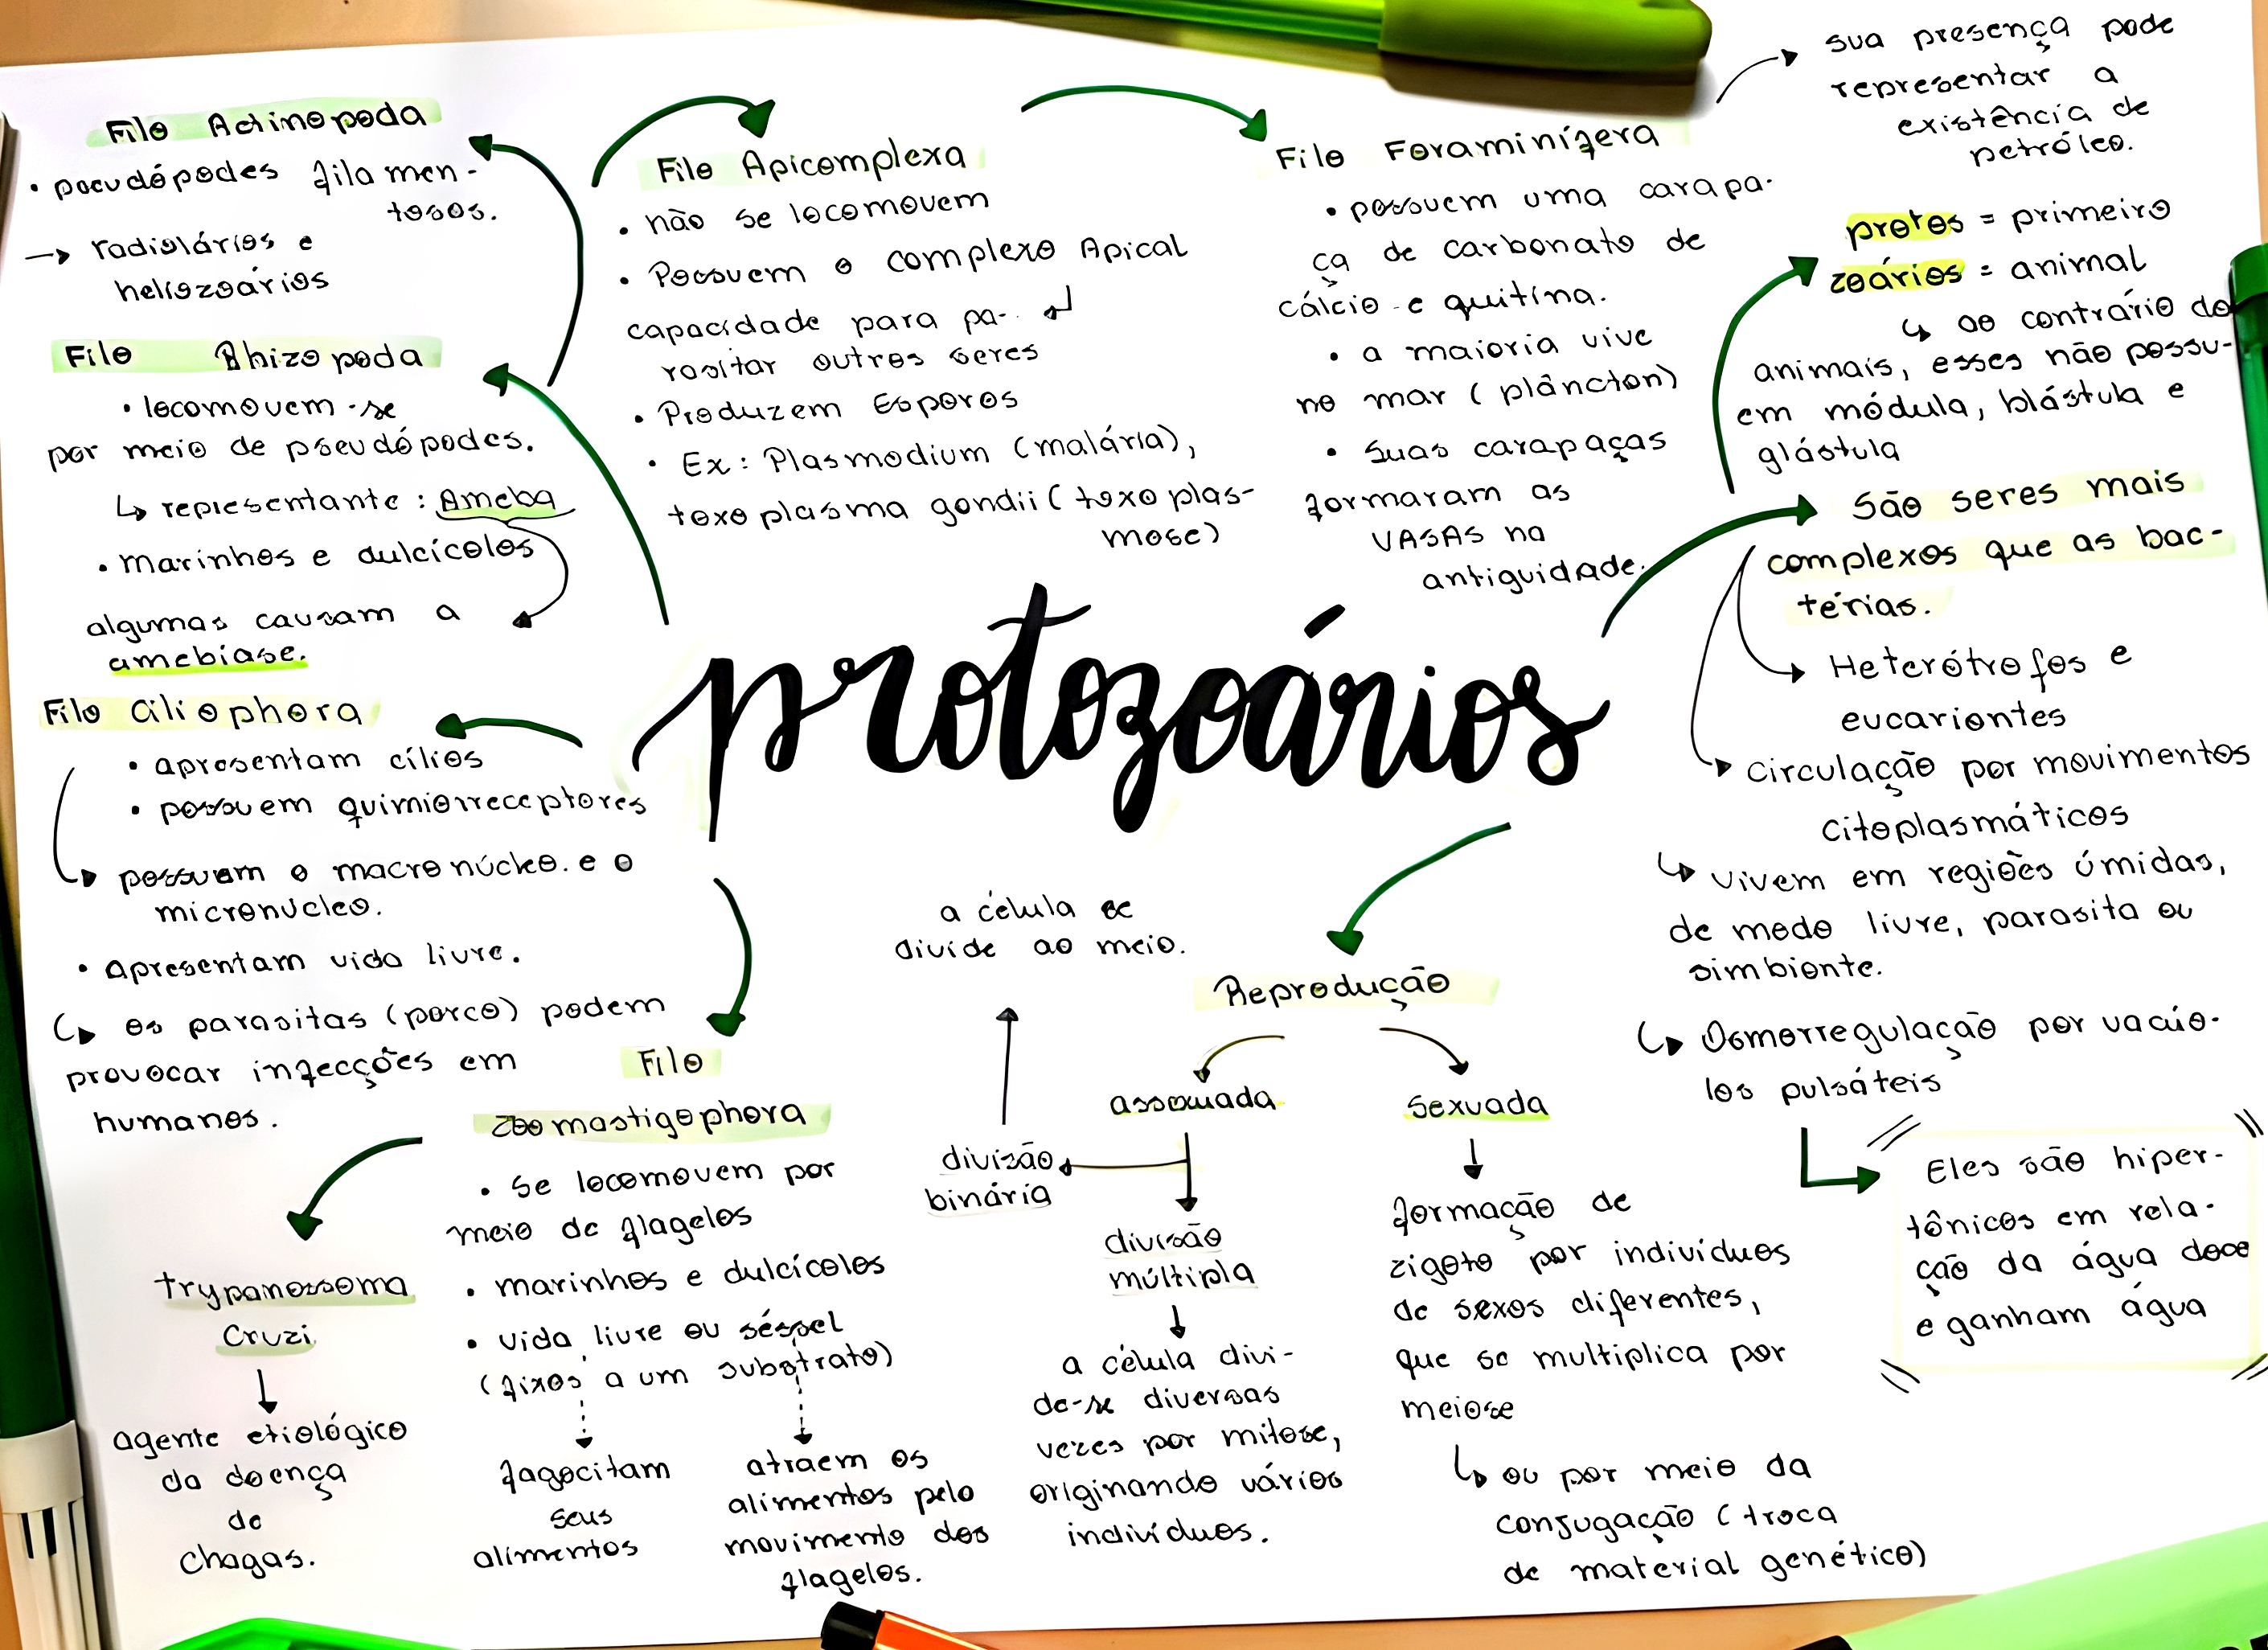 Filo Actinopoda
• pseudópodes filamen-
tosos.
→ radiolários e
heliozoários
Filo Rhizopoda
• locomovem-se
por meio de pseudópodes.
↳ representante: Ameba
• marinhos e dulcícolos
algumas causam a
amebíase.
Filo Ciliophora
• apresentam cílios
• possuem quimiorreceptores
possuem o macronúcleo e o
micronúcleo.
• Apresentam vida livre.
↳ os parasitas (porco) podem
provocar infecções em
humanos.
Filo Apicomplexa
• não se locomovem
• Possuem o complexo Apical
capacidade para pa-
rasitar outros seres
• Produzem Esporos
• Ex: Plasmodium (malária),
toxoplasma gondii (toxoplas-
mose)
Filo Foraminífera
• possuem uma carapa-
ça de carbonato de
cálcio e quitina.
• a maioria vive
no mar (plâncton)
• Suas carapaças
formaram as
VASAS na
antiguidade.
sua presença pode
representar a
existência de
petróleo.
protos = primeiro
zoários = animal
↳ ao contrário do
animais, esses não possu-
em módula, blástula e
glástula
São seres mais
complexos que as bac-
térias.
Heterótrofos e
eucariontes
circulação por movimentos
citoplasmáticos
↳ vivem em regiões úmidas,
de modo livre, parasita ou
simbionte.
↳ Osmorregulação por vacúo-
los pulsáteis
Eles são hiper-
tônicos em rela-
ção da água doce
e ganham água
protozoários
Filo
Zoomastigophora
• Se locomovem por
meio de flagelos
• marinhos e dulcícolos
• vida livre ou séssel
(fixos a um substrato)
fagocitam
seus
alimentos
atraem os
alimentos pelo
movimento dos
flagelos.
trypanossoma
Cruzi
agente etiológico
da doença
de
chagas.
Reprodução
assexuada
sexuada
divisão
binária
a célula se
divide ao meio.
divisão
múltipla
a célula divi-
de-se diversas
vezes por mitose,
originando vários
indivíduos.
formação de
zigoto por indivíduos
de sexos diferentes,
que se multiplica por
meiose
↳ ou por meio da
conjugação (troca
de material genético)